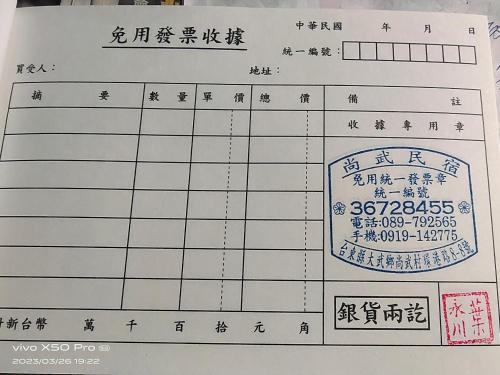 免用發票收據
中華民國 年 月 日
統一編號：
買受人： 地址：
摘 要 數 量 單 價 總 價 備 註
收據專用章
尚武民宿
免用統一發票章
統一編號
36728455
電話:089-792565
手機:0919-142775
台東縣大武鄉尚武村環港路8-8號
銀貨兩訖
葉永川
新台幣 萬 千 百 拾 元 角
vivo X50 Pro
2023/03/26 19:22